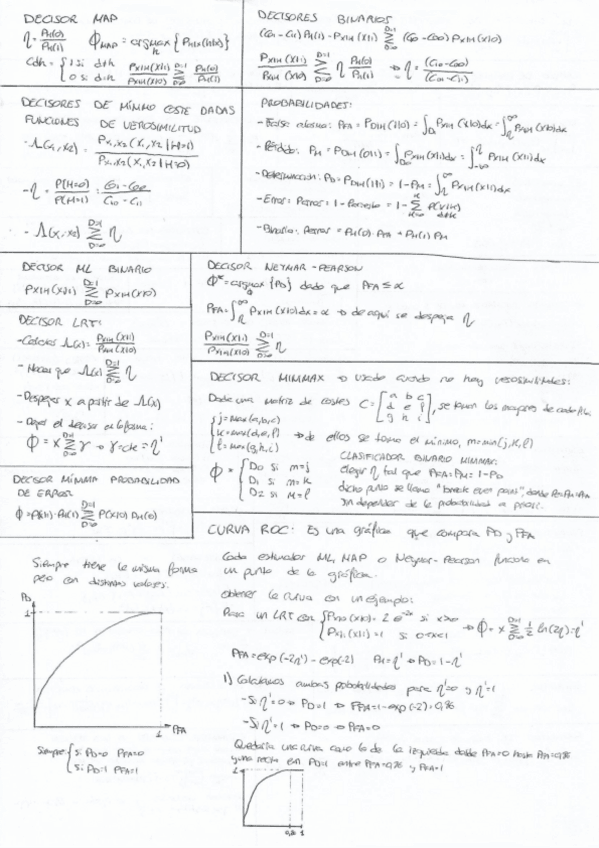 DECISOR MAP
η = P_H(0)/P_H(1)   Φ_MAP = argmax_h {P_H|X(h|x)}
Cdh = { 1 si d≠h
0 si d=h   P_X|H(x|1)/P_X|H(x|0) ≷ P_H(0)/P_H(1)
DECISORES BINARIOS
(C01 - C11) P_H(1) · P_X|H(x|1) ≷ (C10 - C00) P_X|H(x|0)
P_X|H(x|1)/P_X|H(x|0) ≷ η P_H(0)/P_H(1) → η = (C10-C00)/(C01-C11)
DECISORES DE MÍNIMO COSTE DADAS
FUNCIONES DE VEROSIMILITUD
- Λ(x1,x2) = P_X1,X2(x1,x2|H=1)/P_X1,X2(x1,x2|H=0)
- η = P(H=0)/P(H=1)
- Λ(x1,x2) ≷ η
PROBABILIDADES:
- Falsa alarma: PFA = P_D|H(1|0) = ∫ P_X|H(x|0)dx = ∫ P_X|H(x|0)dx
- Pérdida: PM = P_D|H(0|1) = ∫ P_X|H(x|1)dx = ∫ P_X|H(x|1)dx
PD = P_D|H(1|1) = 1-PM = ∫ P_X|H(x|1)dx
- Error: Perror = 1 - Pacierto = 1 -
- Binario: Perror = P_H(0) · PFA + P_H(1) PM
DECISOR ML BINARIO
P_X|H(x|1) ≷ P_X|H(x|0)
DECISOR NEYMAR-PEARSON
Φ* = argmax {PD} dado que PFA ≤ α
PFA = ∫ P_X|H(x|0)dx = α → de aquí se despeja η
P_X|H(x|1)/P_X|H(x|0) ≷ η
DECISOR LRT:
- Calcular Λ(x) = P_X|H(x|1)/P_X|H(x|0)
que Λ(x) ≷ η
- Despejar x a partir de Λ(x)
- Dejar el decisor de la forma:
Φ = x ≷ γ → γ = cte = η'
DECISOR MÍNIMA PROBABILIDAD
DE ERROR
DECISOR MINMAX → usado cuando no hay verosimilitudes:
Dada una matriz de costes C = [a b c
d e f
g h i], se toman los mayores de cada fila
{ j = max(a,b,c)
k = max(d,e,f) → de ellos se toma el mínimo, m = min(j,k,l)
l = max(g,h,i)
Φ = { D0 si m=j
D1 si m=k
D2 si m=l
CLASIFICADOR BINARIO MINMAX:
elegir η tal que PFA = PM = 1-PD
dicho punto se llama "break even point", donde
sin depender de la probabilidad a priori.
CURVA ROC: Es una gráfica que compara PD y PFA
Cada estimador ML, MAP o Neyman-Pearson funciona en
un punto de la gráfica.
Siempre tiene la misma forma
pero con distintos valores.
PD
1
1
PFA
Siempre { si PD=0 PFA=0
si PD=1 PFA=1
obtener la curva con un ejemplo:
Para un LRT con { P_X|H(x|0) = 2 e^-2x si x>0
P_X|H(x|1) = 1 si 0<x<1 → Φ = x ≷ 1/2 ln(2η) = η'
PFA = exp(-2η') - exp(-2)   PM = η' → PD = 1-η'
1) Calculamos ambas probabilidades para η'=0 y η'=1
- Si η'=0 → PD=1 → PFA = 1-exp(-2) = 0,86
- Si η'=1 → PD=0 → PFA=0
Quedaría una curva como la de la izquierda desde PFA=0 hasta PFA=0,86
y una recta en PD=1 entre PFA=0,86 y PFA=1
1
0,86 1